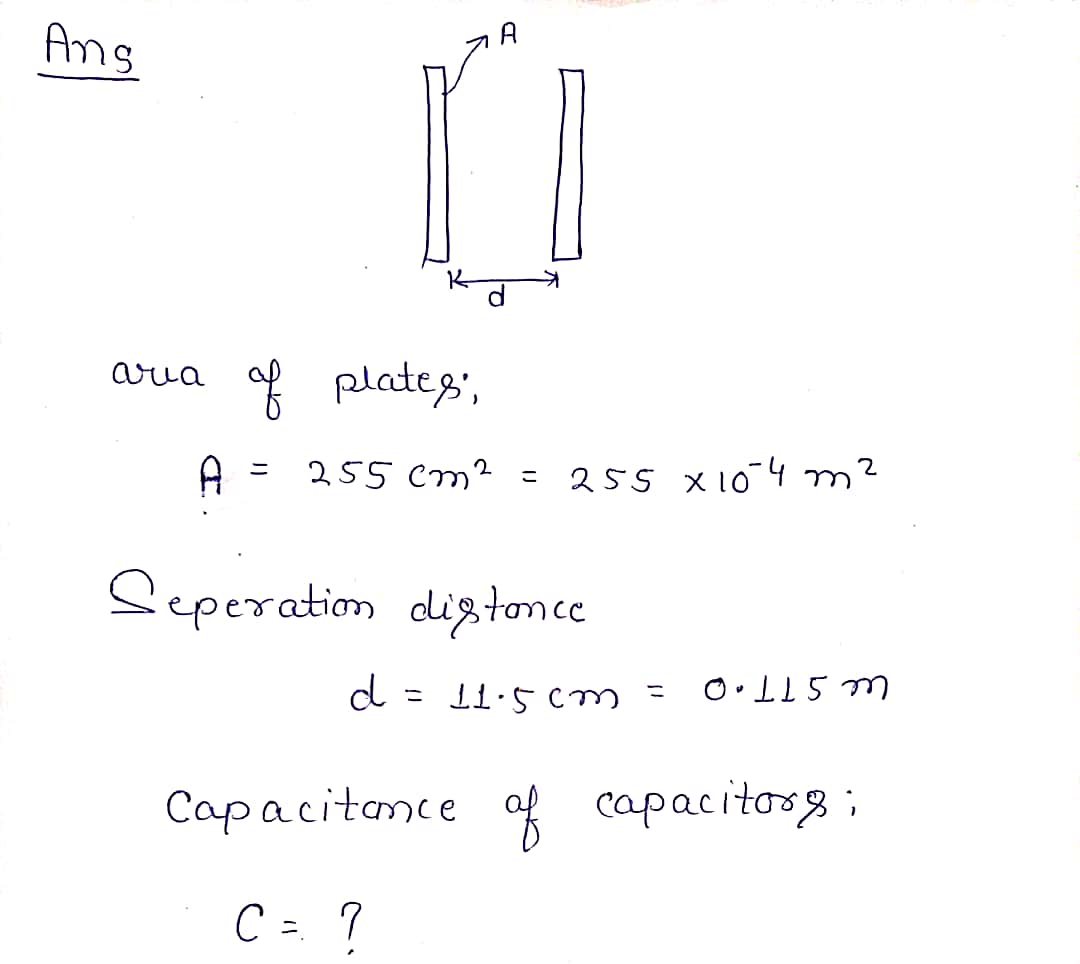 Ans
A
d
area of plates;
A = 255 cm² = 255 × 10⁻⁴ m²
Seperation distance
d = 11.5 cm = 0.115 m
Capacitance of capacitors;
C = ?